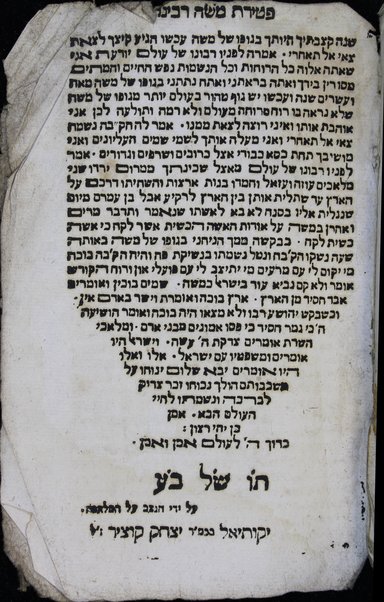 פטירת משה רבינו
שנה קצבתיך היותך בגופו של משה עכשו הגיע קיצך לצאת
צאי אל תאחרי · אמרה לפניו רבונו של עולם יודעת אני
שאתה אלוה כל הרוחות וכל הנשמות נפש החיים והמתים
מסורין בידך ואתה בראתני ואתה נתתני בגופו של משה מאה
ועשרים שנה ועכשו יש גוף טהור בעולם יותר מגופו של משה
שלא נראה בו רוח סרוחה מעולם ולא רמה ותולעה לכן אני
אוהבת אותו ואיני רוצה לצאת ממנו · אמר לה הקב״ה נשמה
צאי אל תאחרי ואני מעלה אותך לשמי שמים העליונים ואני
מושיבך תחת כסא כבודי אצל כרובים ושרפים וגדודים · אמרה
לפניו רבונו של עולם מאצל שכינתך ממרום ירדו שני
מלאכים עוזה ועזאל וחמדו בנות ארצות והשחיתו דרכם על
הארץ עד שתלית אותן בין הארץ לרקיע אבל בן עמרם מיום
שנגלית אליו בסנה לא בא לאשתו שנאמר ותדבר מרים
ואהרן במשה על אודות האשה הכושית אשר לקח כי אשה
כשית לקח · בבקשה ממך הניחני בגופו של משה באותה
שעה נשקו הקב״ה ונטל נשמתו בנשיקת פה והיה הקב״ה בוכה
מי יקום לי עם מרעים מי יתיצב לי עם פועלי און ורוח הקודש
אומר ולא קם נביא עוד בישראל כמשה · שמים בוכין ואומרים
אבד חסיד מן הארץ · ארץ בוכה ואומרת וישר באדם אין ·
וכשבקש יהושע רבו ולא מצאו היה בוכה ואומר הושיעה
ה׳ כי גמר חסיד כי פסו אמונים מבני אדם · ומלאכי
השרת אומרים צדקת ה׳ עשה · וישראל היו
אומרים ומשפטיו עם ישראל · אלו ואלו
היו אומרים יבא שלום ינוחו על
משכבותם הולך נכוחו זכר צדיק
לברכה ונשמתו לחיי
העולם הבא · אמן
כן יהי רצון :
ברוך ה׳ לעולם אמן ואמן ·
תו של בע
על ידי הנצב על המלאכה ·
יקותיאל יצחק קוציר ז״ל